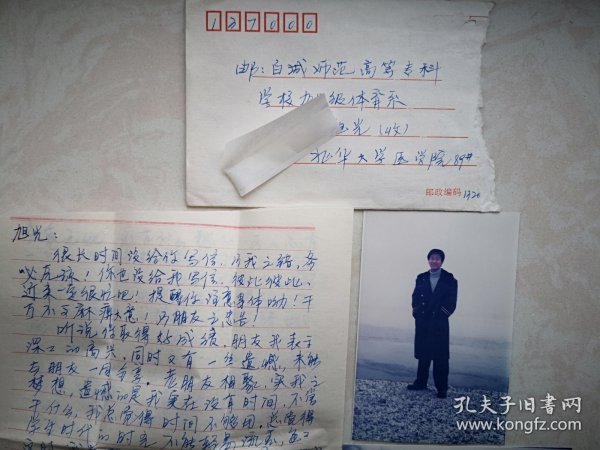 137000
邮：白城师范高等专科
学校九级体育系
光（收）
北华大学医学院89#
邮政编码 132
旭光：
很长时间没给你写信，乃我之错，务
必见谅！你也没给我写信，彼此彼此，
近来一定很忙吧！提醒你注意身体哟！千
万不可麻痹大意！乃朋友之忠告！
听说你取得好成绩，朋友我表示
深深的高兴，同时又有一丝遗憾，未能
与朋友一同分享。老朋友相聚，实我之
梦想，遗憾的是我实在没有时间，不管
干什么，我总觉得时间不够用，总觉得
学生时代的时光不能轻易流系，
孔夫子旧书网
www.kongfz.com